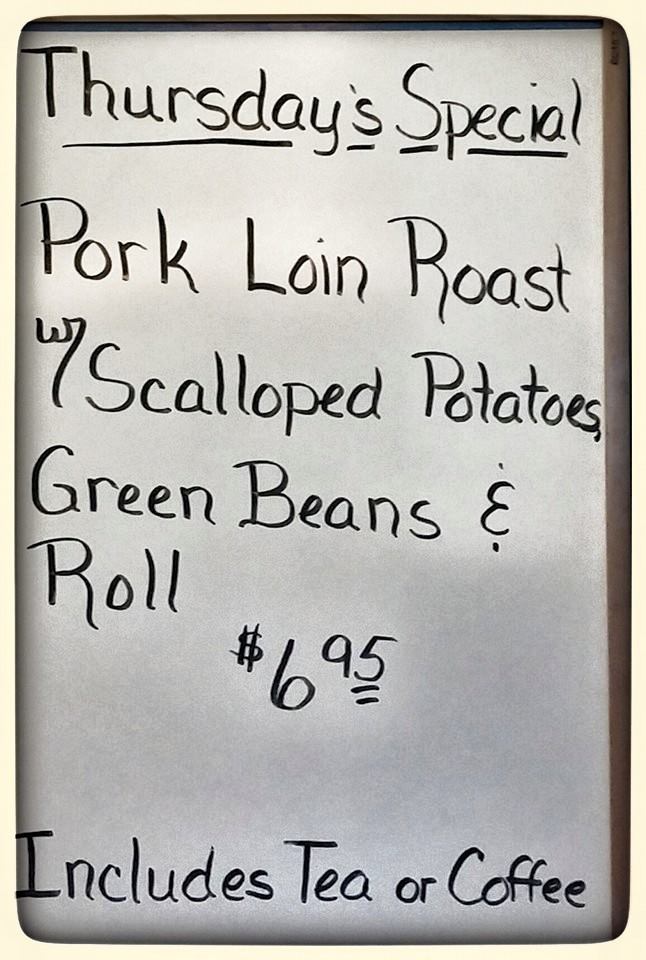 Thursday's Special
Pork Loin Roast
w/ Scalloped Potatoes,
Green Beans &
Roll
$6.95
Includes Tea or Coffee